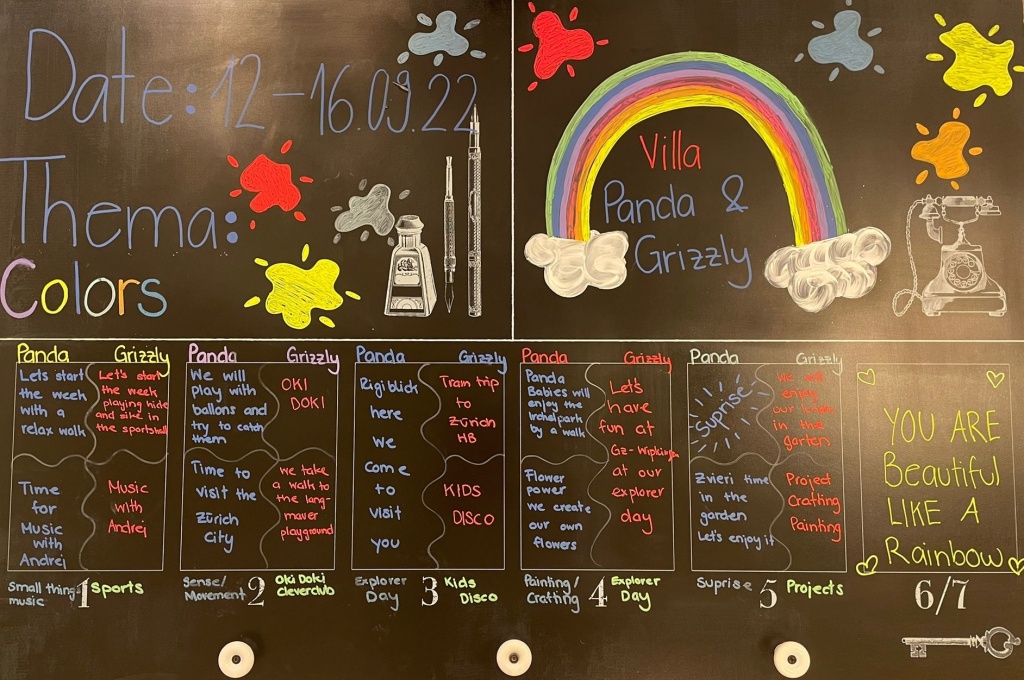 Date: 12-16.09.22
Thema:
Colors
Villa
Panda &
Grizzly
Panda Grizzly
Lets start
the week
with a
relax walk
Let's start
the week
playing hide
and sike in
the sportshall
Time
for
Music
with
Andrej
Music
with
Andrej
Small things
music
1
Sports
Panda Grizzly
We will
play with
ballons and
try to catch
them
OKI
DOKI
Time to
visit the
Zürich
City
we take
a walk to
the lang-
mauer
playground
Sense/
Movement
2
Oki Doki
cleverclub
Panda Grizzly
Rigiblick
here
we
come
to
visit
you
Tram trip
to
Zürich
HB
KIDS
DISCO
Explorer
Day
3
Kids
Disco
Panda Grizzly
Panda
Babies will
enjoy the
irchelpark
by a walk
Flower
power
we create
our own
flowers
Let's
have
fun at
Gz-Wipkingen
at our
explorer
day
Painting/
Crafting
4
Explorer
Day
Panda Grizzly
Suprise
we will
enjoy
our
in the
garten
Zvieri time
in the
garden
Let's enjoy it
Project
Crafting
Painting
Suprise
5
Projects
YOU ARE
Beautiful
LIKE A
Rainbow
6/7